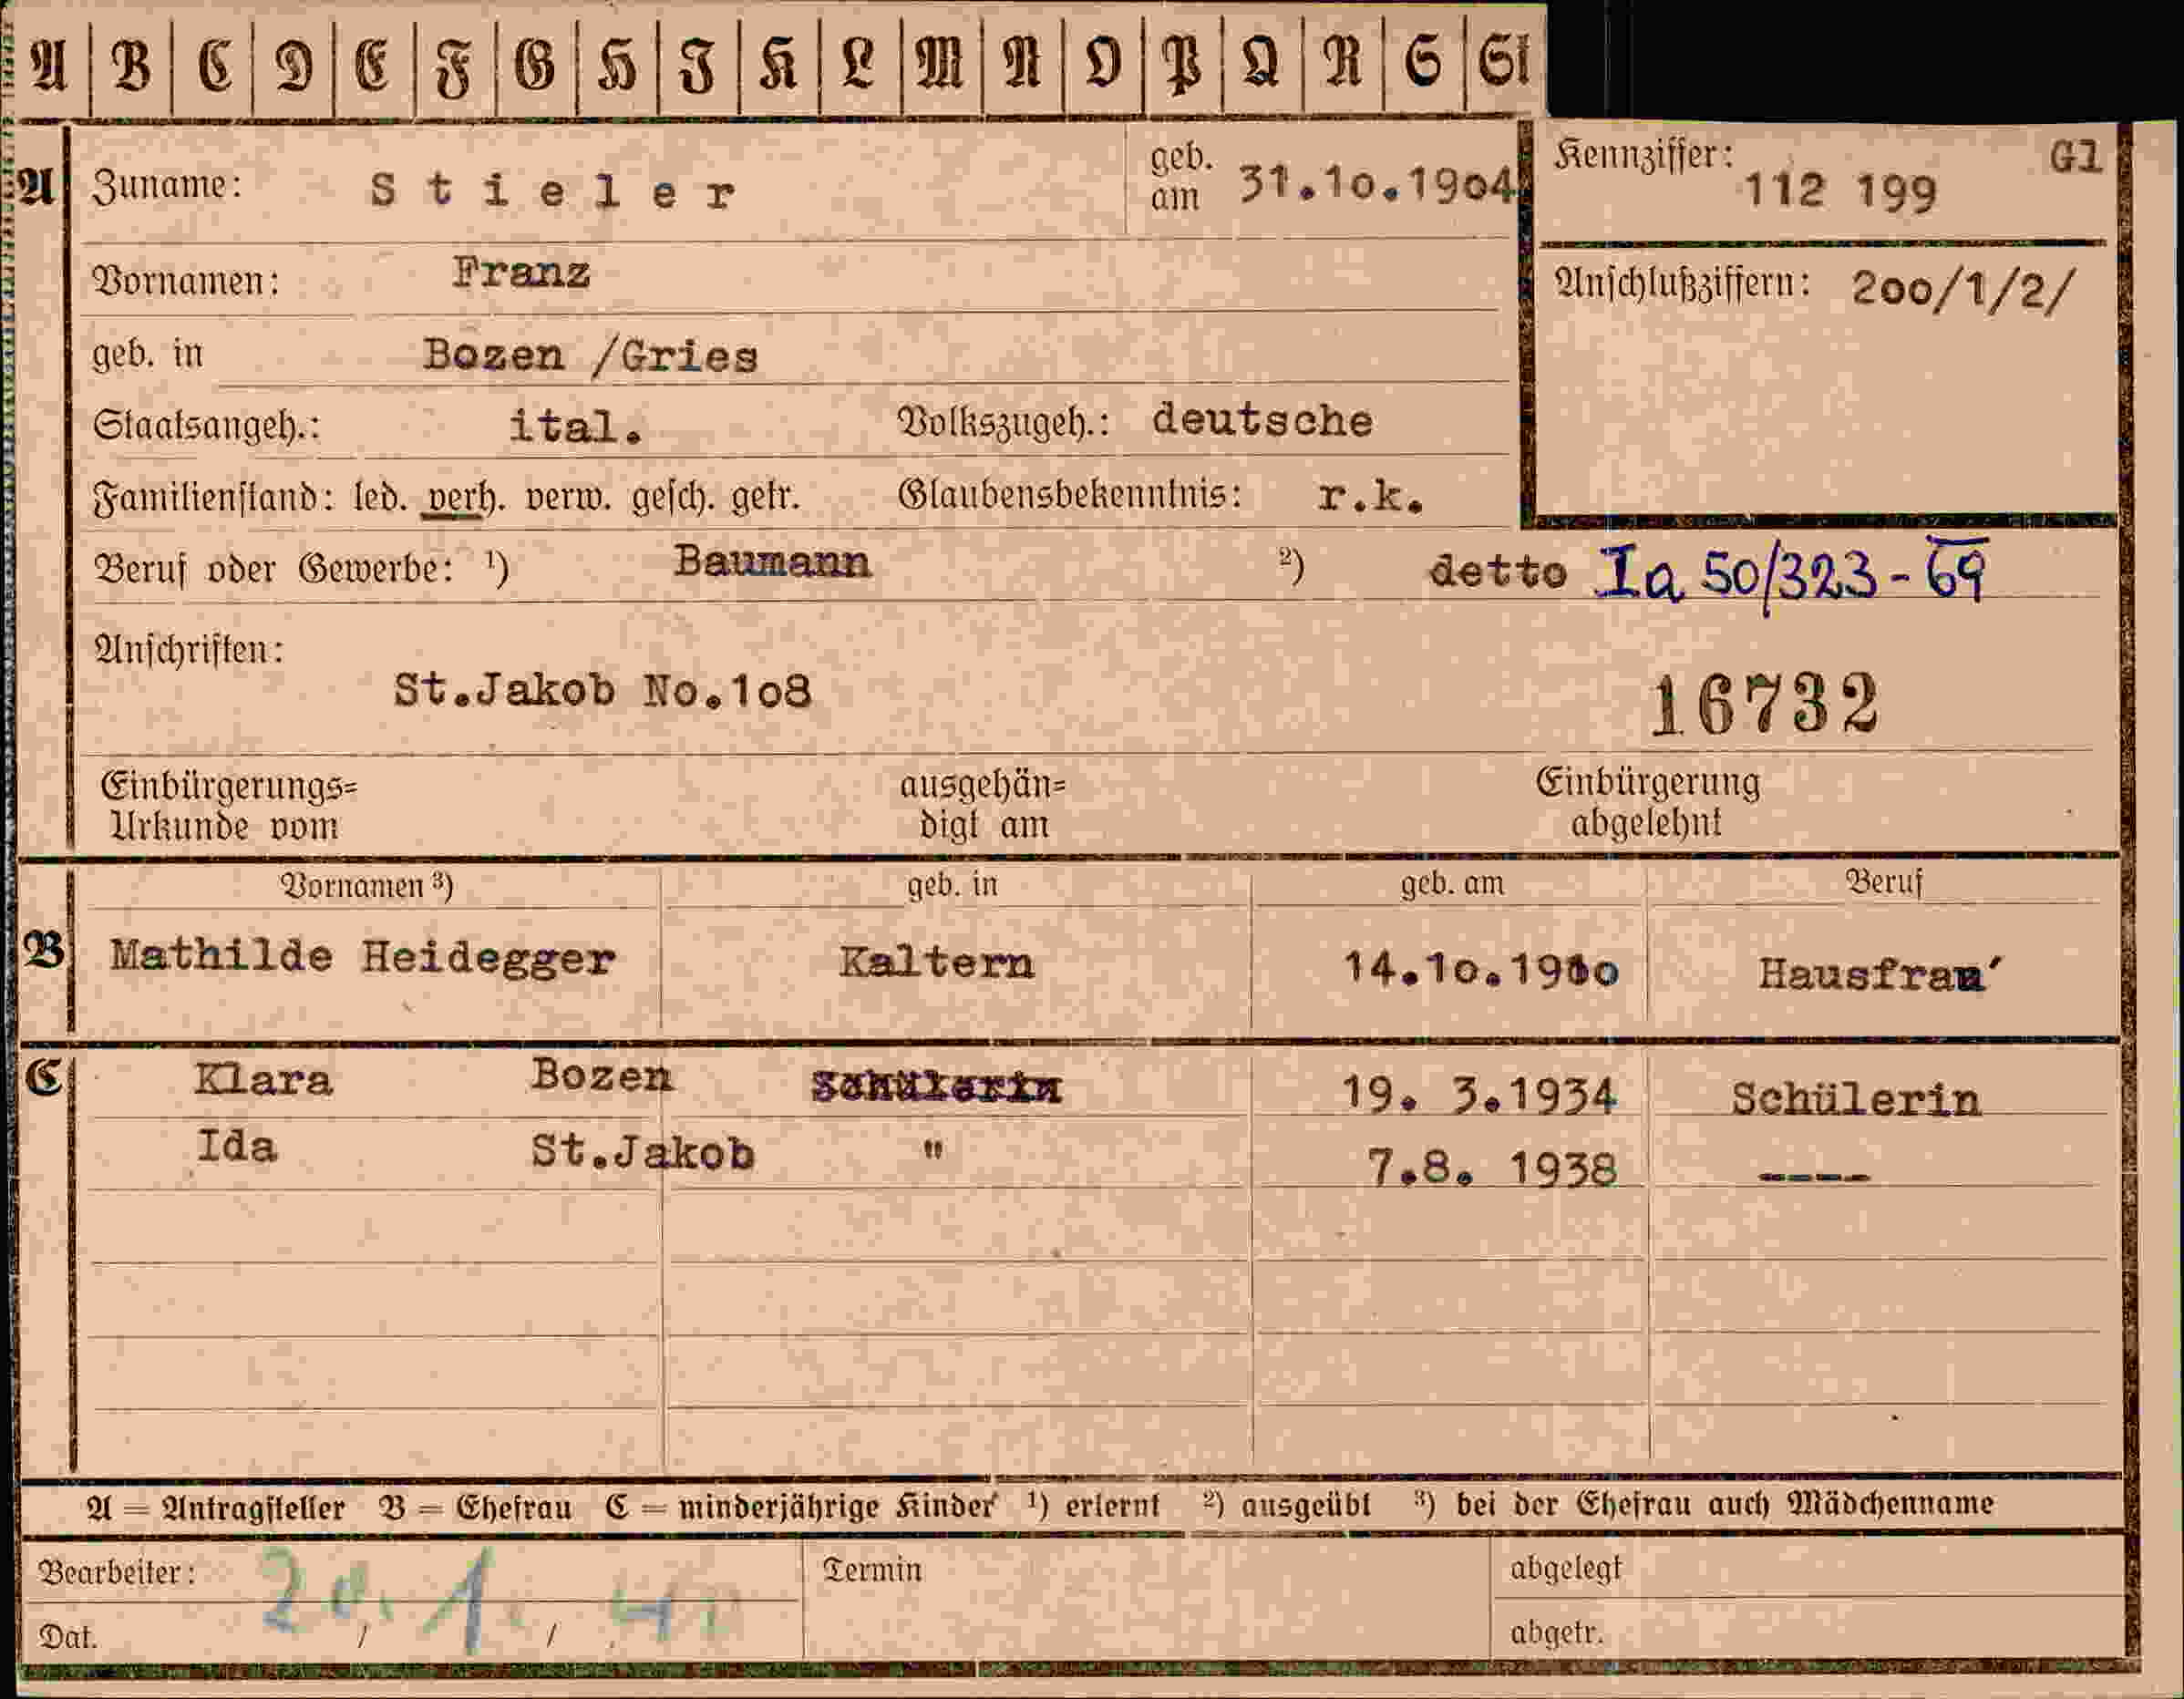 A B C D E F G H I K L M N O P Q R S St
A Zuname: Stieler geb. am 31.10.1904 Kennziffer: 112 199 Gl
Vornamen: Franz Anschlußziffern: 200/1/2/
geb. in Bozen /Gries
Staatsangeh.: ital. Volkszugeh.: deutsche
Familienstand: led. verh. verw. gesch. getr. Glaubensbekenntnis: r.k.
Beruf oder Gewerbe: ¹) Baumann ²) detto Ia 50/323-69
Anschriften:
St.Jakob No.108 16732
Einbürgerungs= ausgehän= Einbürgerung
Urkunde vom digt am abgelehnt
Vornamen ³) geb. in geb. am Beruf
B Mathilde Heidegger Kaltern 14.10.1910 Hausfrau
C Klara Bozen Schülerin 19. 3.1934 Schülerin
Ida St.Jakob " 7.8. 1938 ----
A = Antragsteller B = Ehefrau C = minderjährige Kinder ¹) erlernt ²) ausgeübt ³) bei der Ehefrau auch Mädchenname
Bearbeiter: 20. 1. 40 Termin abgelegt
Dat. / / abgetr.